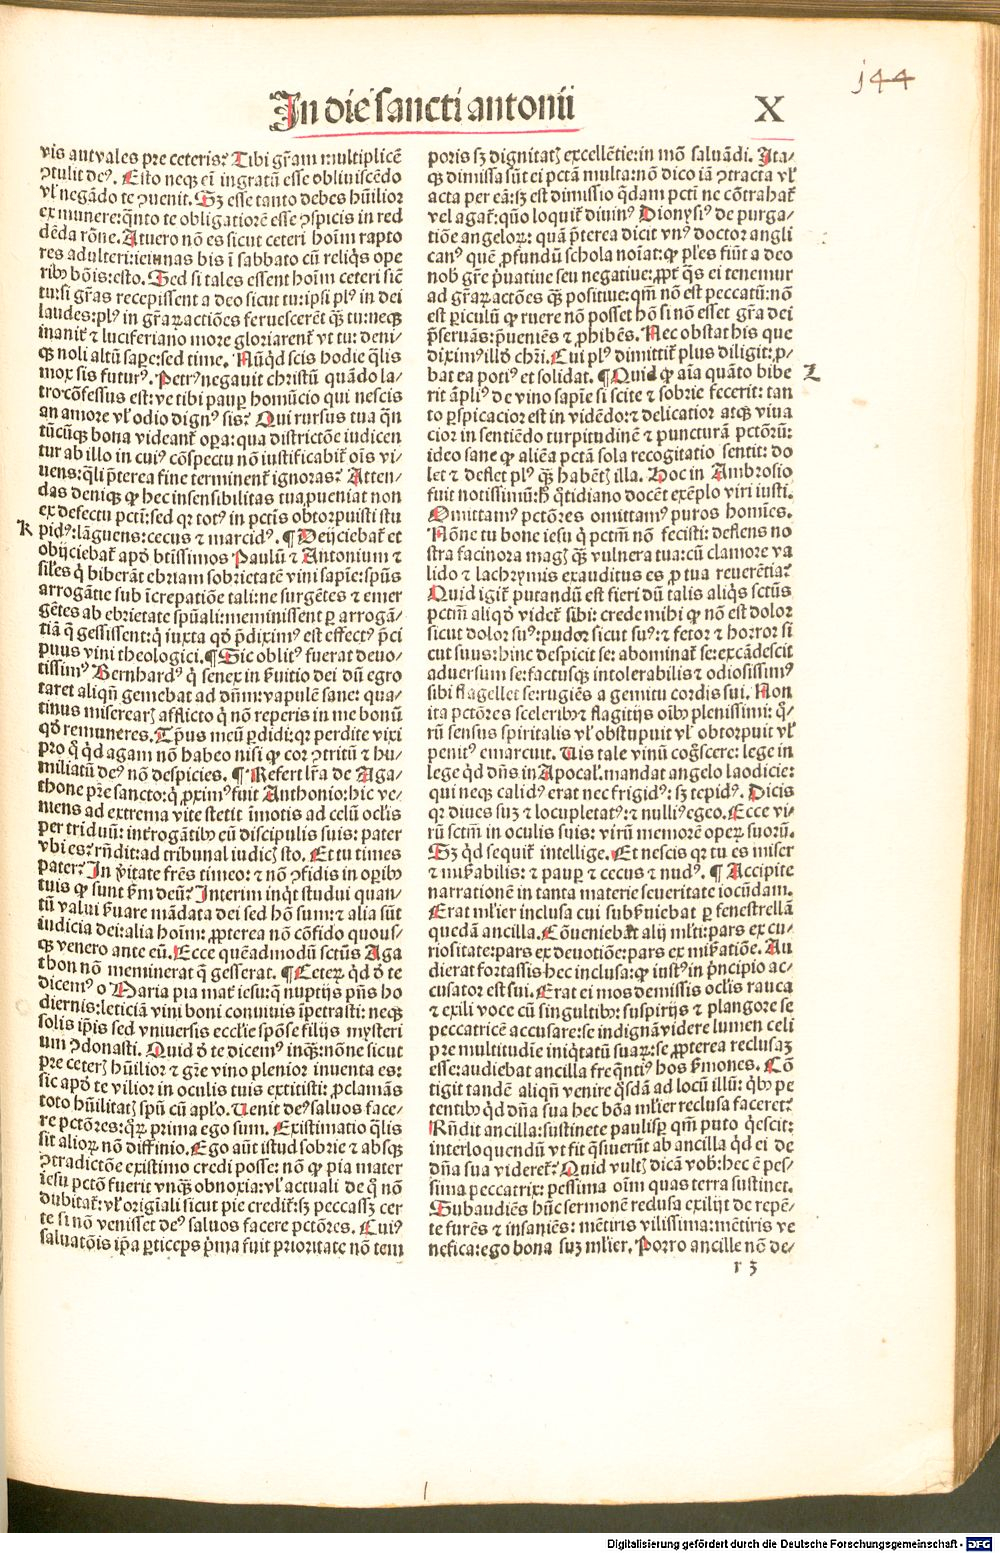 144
In die sancti antonii X
vis aut vales pre ceteris? Tibi gr̄am multiplicē
ꝯtulit deꝰ. Esto neqꝫ eī ingratū esse obliuiscēdo
vl̓ negādo te ꝯuenit. Sꝫ esse tanto debes hūilior
ex munere: q̄nto te obligatiorē esse ꝯspicis in red
dēda rōne. At vero nō es sicut ceteri hoīm rapto
res adulteri: ieiunas bis ī sabbato cū reliq̄s ope
ribꝰ bōis: esto. Sed si tales essent hoīm ceteri siē
tu: si gr̄as recepissent a deo sicut tu: ipsi plꝰ in dei
laudes: plꝰ in gr̄aꝝ actiōes feruescerēt qꝫ tu: neqꝫ
inanit̓ ⁊ luciferiano more gloriarent̓ vt tu: deni-
qꝫ noli altū sape: sed time. Nūqd scis hodie q̄lis
mox sis futurꝰ. Petrꝰ negauit christū quādo la-
tro cōfessus est: ve tibi paup̱ homūcio qui nescis
an amore vl̓ odio dignꝰ sis? Qui rursus tua q̄n
tūcūqꝫ bona videant̓ oꝑa: qua districtōe iudicen
tur ab illo in cuiꝰ cōspectu nō iustificabit̓ oīs vi-
uens: q̄li p̄terea fine terminent̓ ignoras? Atten-
das deniqꝫ ꝙ hec insensibilitas tua ꝓueniat non
ex defectu pcti: sed qꝛ totꝰ in pctīs obtorpuisti stu
K pidꝰ: lāguens: cecus ⁊ marcidꝰ. ¶ Deijciebat̓ et
obijciebat̓ apd̓ btissimos Paulū ⁊ Antonium ⁊
sil̓es q̓ biberāt ebriam sobrietatē vini sapīe: spūs
arrogātie sub īcrepatiōe tali: ne surgētes ⁊ emer
gētes ab ebrietate spūali: meminissent ꝑ arrogā-
tiā q̄ gessissent: q̓ iuxta qd̓ p̄diximꝰ est effectꝰ p̄ci
puus vini theologici. ¶ Sic oblitꝰ fuerat deuo-
tissimꝰ Bernhardꝰ q̓ senex in ẜuitio dei dū egro
taret aliqn̄ gemebat ad dn̄m: vapulē sane: qua-
tinus miserearꝫ afflicto q̓ nō reperis in me bonū
qd̓ remuneres. Tp̄us meū ꝑdidi: qꝛ perdite vixi
pro q̓ qd̓ agam nō habeo nisi ꝙ cor ꝯtritū ⁊ hu-
miliatū deꝰ nō despicies. ¶ Refert lr̄a de Aga-
thone pr̄e sancto: q̓ ꝓximꝰ fuit Anthonio: hic ve-
niens ad extrema vite stetit īmotis ad celū oclis
per triduū: interrogātibꝰ eū discipulis suis: pater
vbi es? rn̄dit: ad tribunal iudicꝫ sto. Et tu times
pater? In v̓itate frēs timeo: ⁊ nō ꝯfidis in oꝑibꝰ
tuis ꝙ sunt ẜm deū? Interim inqt studui quan-
tū valui ẜuare mādata dei sed hō sum: ⁊ alia sūt
iudicia dei: alia hoīm: ꝓpterea nō cōfido quous-
qꝫ venero ante eū. Ecce quēadmodū sctūs Aga
thon nō meminerat q̄ gesserat. ¶ Ceteꝝ qd̓ d̓ te
dicemꝰ o Maria pia mat̓ iesu: q̄ nuptijs pn̄s ho
diernis: leticiā vini boni conuiuis īpetrasti: neqꝫ
solis ip̄is sed vniuersis ecclīe spōse filijs mysteri
um ꝯdonasti. Quid d̓ te dicemꝰ inqꝫ: nōne sicut
pre ceterꝫ hūilior ⁊ gr̄e vino plenior inuenta es:
sic apd̓ te vilior in oculis tuis extitisti: ꝓclamās
toto hūilitatꝫ spū cū apl̓o. Uenit deꝰ saluos face-
re pctōres: qꝝ prima ego sum. Existimatio q̄lis
sit alioꝝ nō diffinio. Ego aūt istud sobrie ⁊ absqꝫ
ꝯtradictōe existimo credi posse: nō ꝙ pia mater
iesu pctō fuerit vnqꝫ obnoxia: vl̓ actuali de q̓ nō
dubitat̓: vl̓ origīali sicut pie credit̓: sꝫ peccassꝫ cer
te si nō venisset deꝰ saluos facere pctōres. Cuiꝰ
saluatōis ip̄a ꝑticeps p̓ma fuit prioritate nō tem
poris sꝫ dignitatꝫ excellētie: in mō saluādi. Ita-
qꝫ dimissa sūt ei pctā multa: nō dico iā ꝯtracta vl̓
acta per eā: sꝫ est dimissio q̄dam pcti ne cōtrahat̓
vel agat̓: quō loquit̓ diuinꝰ Dionysiꝰ de purga-
tiōe angeloꝝ: quā p̄terea dicit vnꝰ doctor angli
canꝰ quē ꝓfundū schola noīat: ꝙ ples fiūt a deo
nob̓ gr̄e p̓uatiue seu negatiue: ꝓpt̓ q̄s ei tenemur
ad gr̄aꝝ actōes qꝫ positiue: qm̄ nō est peccatū: nō
est ꝑiculū ꝙ ruere nō posset hō si nō esset gr̄a dei
p̄seruās: p̄ueniēs ⁊ ꝓhibēs. Nec obstat his que
diximꝰ illd̓ chr̄i. Cui plꝰ dimittit̓ plus diligit: ꝓ-
bat ea potiꝰ et solidat. ¶ Quid ꝙ aīa quāto bibe L
rit āpliꝰ de vino sapīe si scite ⁊ sobrie fecerit: tan
to ꝑspicacior est in vidēdo: ⁊ delicatior atqꝫ viua
cior in sentiēdo turpitudinē ⁊ puncturā pctōꝝ:
ideo sane ꝙ aliēa pctā sola recogitatio sentit: do
let ⁊ deflet plꝰ qꝫ habētꝫ illa. Hoc in Ambrosio
fuit notissimū: h̓ q̓tidiano docēt exēplo viri iusti.
Omittamꝰ pctōres omittamꝰ puros homīes.
Nōne tu bone iesu q̓ pctm̄ nō fecisti: deflens no
stra facinora magꝫ qꝫ vulnera tua: cū clamore va
lido ⁊ lachrymis exauditus es ꝓ tua reuerētia?
Quid igit̓ putandū est fieri dū talis aliq̓s sctūs
pctm̄ aliqd̓ videt̓ sibi: crede mihi ꝙ nō est dolor
sicut dolor suꝰ: pudor sicut suꝰ: ⁊ fetor ⁊ horror si
cut suus: hinc despicit se: abominat̓ se: excādescit
aduersum se: factusqꝫ intolerabilis ⁊ odiosissimꝰ
sibi flagellet se: rugiēs a gemitu cordis sui. Non
ita pctōres sceleribꝰ ⁊ flagitijs oībꝰ plenissimi: q̓-
rū sensus spiritalis vl̓ obstupuit vl̓ obtorpuit vl̓
penitꝰ emarcuit. Uis tale vinū cog̓scere: lege in
lege qd̓ dn̄s in Apocal̓. mandat angelo laodicie:
qui neqꝫ calidꝰ erat nec frigidꝰ: sꝫ tepidꝰ. Dicis
qꝛ diues suꝫ ⁊ locupletatꝰ: ⁊ nulliꝰ egeo. Ecce vi-
rū sctm̄ in oculis suis: virū memorē oꝑeꝝ suoꝝ.
Sꝫ qd̓ sequit̓ intellige. Et nescis qꝛ tu es miser
⁊ mis̓abilis: ⁊ pauꝑ ⁊ cecus ⁊ nudꝰ. ¶ Accipite
narrationē in tanta materie seueritate iocūdam.
Erat ml̓ier inclusa cui subẜuiebat ꝑ fenestrellā
quedā ancilla. Cōueniebāt alij ml̓ti: pars ex cu-
riositate: pars ex deuotiōe: pars ex mir̓atiōe. Au
dierat fortassis hec inclusa: ꝙ iustꝰ in p̓ncipio ac-
cusator est sui. Erat ei mos demissis oclis rauca
⁊ exili voce cū singultibꝰ: suspirijs ⁊ plangore se
peccatricē accusare: se indignā videre lumen celi
pre multitudīe iniq̓tatū suaꝝ: se ꝓpterea reclusaꝫ
esse: audiebat ancilla freq̄ntiꝰ hos ẜmones. Cō
tigit tandē aliqn̄ venire q̓sdā ad locū illū: q̓bꝰ pe
tentibꝰ qd̓ dn̄a sua hec bōa ml̓ier reclusa faceret?
Rn̄dit ancilla: sustinete paulisꝑ qm̄ puto q̓escit:
interloquendū vt fit q̄siuerūt ab ancilla qd̓ ei de
dn̄a sua videret̓? Quid vultꝫ dicā vob̓: hec ē pes-
sima peccatrix: pessima oīm quas terra sustinet.
Subaudiēs hūc sermonē reclusa exilijt de repē-
te furēs ⁊ insaniēs: mētiris vilissima: mētiris ve
nefica: ego bona suꝫ ml̓ier. Porro ancille nō de-
r 3
Digitalisierung gefördert durch die Deutsche Forschungsgemeinschaft - DFG